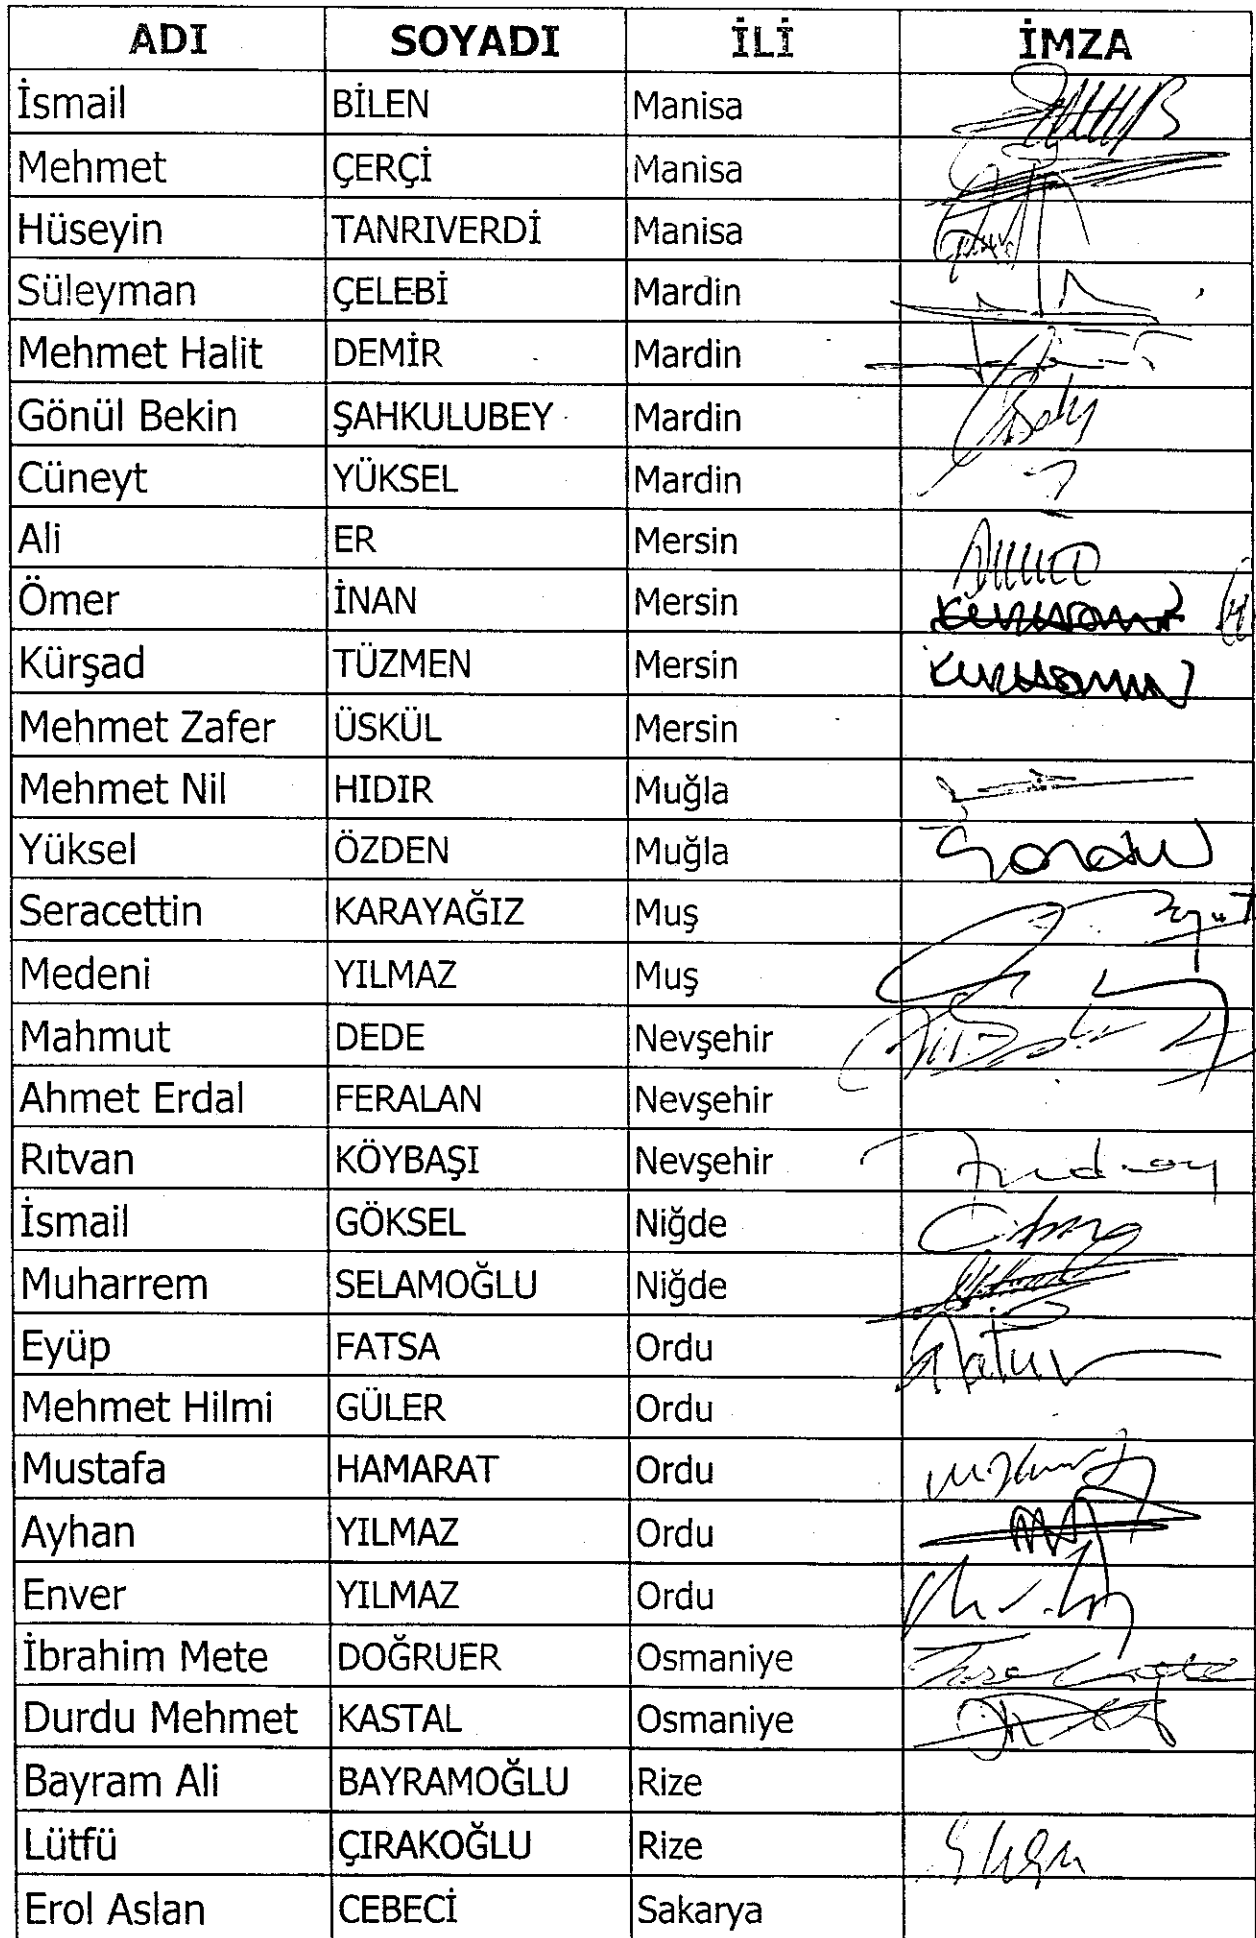 ADI SOYADI İLİ İMZA
İsmail BİLEN Manisa
Mehmet ÇERÇİ Manisa
Hüseyin TANRIVERDİ Manisa
Süleyman ÇELEBİ Mardin
Mehmet Halit DEMİR Mardin
Gönül Bekin ŞAHKULUBEY Mardin
Cüneyt YÜKSEL Mardin
Ali ER Mersin
Ömer İNAN Mersin
Kürşad TÜZMEN Mersin
Mehmet Zafer ÜSKÜL Mersin
Mehmet Nil HIDIR Muğla
Yüksel ÖZDEN Muğla
Seracettin KARAYAĞIZ Muş
Medeni YILMAZ Muş
Mahmut DEDE Nevşehir
Ahmet Erdal FERALAN Nevşehir
Rıtvan KÖYBAŞI Nevşehir
İsmail GÖKSEL Niğde
Muharrem SELAMOĞLU Niğde
Eyüp FATSA Ordu
Mehmet Hilmi GÜLER Ordu
Mustafa HAMARAT Ordu
Ayhan YILMAZ Ordu
Enver YILMAZ Ordu
İbrahim Mete DOĞRUER Osmaniye
Durdu Mehmet KASTAL Osmaniye
Bayram Ali BAYRAMOĞLU Rize
Lütfü ÇIRAKOĞLU Rize
Erol Aslan CEBECİ Sakarya